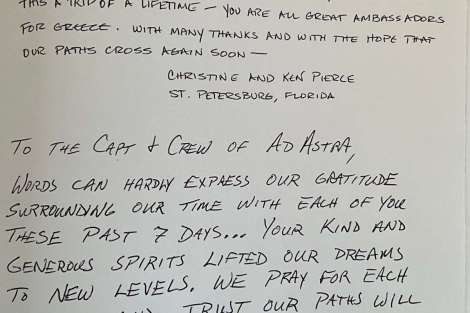 THIS A TRIP OF A LIFETIME — YOU ARE ALL GREAT AMBASSADORS
FOR GREECE. WITH MANY THANKS AND WITH THE HOPE THAT
OUR PATHS CROSS AGAIN SOON —
CHRISTINE AND KEN PIERCE
ST. PETERSBURG, FLORIDA
TO THE CAPT & CREW OF AD ASTRA,
WORDS CAN HARDLY EXPRESS OUR GRATITUDE
SURROUNDING OUR TIME WITH EACH OF YOU
THESE PAST 7 DAYS... YOUR KIND AND
GENEROUS SPIRITS LIFTED OUR DREAMS
TO NEW LEVELS. WE PRAY FOR EACH
AND TRUST OUR PATHS WILL